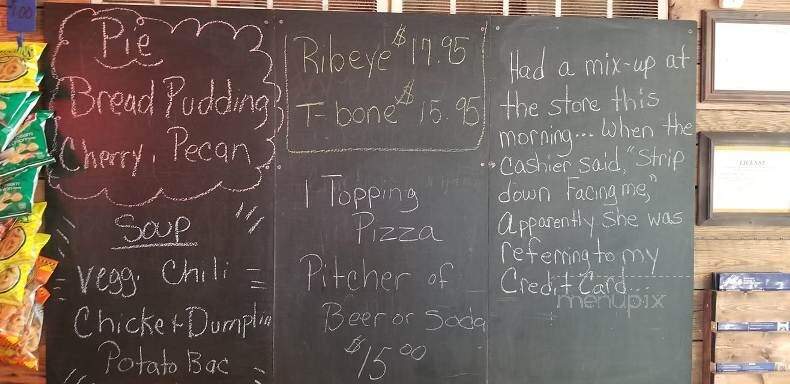 Pie
Bread Pudding
Cherry, Pecan
Soup
Vegg. Chili
Chicke + Dumplin
Potato Bac
Ribeye $17.95
T-bone $15.95
1 Topping
Pizza
Pitcher of
Beer or Soda
$15.00
Had a mix-up at
the store this
morning... When the
Cashier said, "Strip
down Facing me,"
Apparently She was
referring to my
Credit Card...
menupix
LICENSE